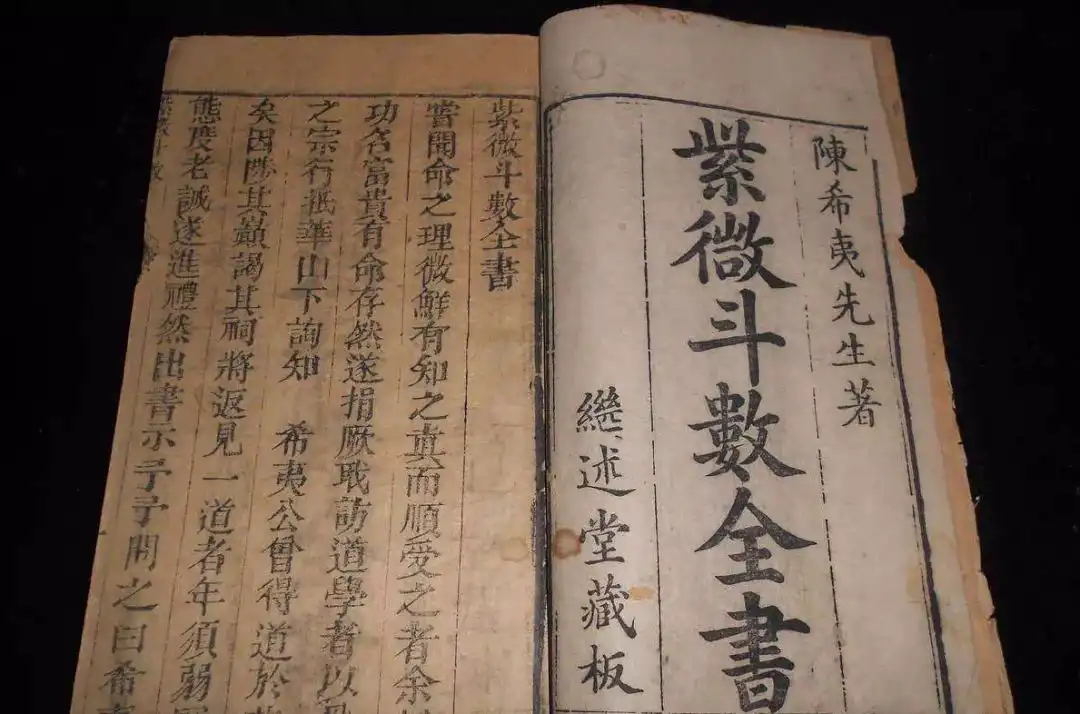 陳希夷先生著
紫微斗數全書
繼述堂藏板
紫微斗數全書
嘗聞命之理微鮮有知之真而順受之者余
功名富貴有命存然遂捐厥職訪道學者以
之宗行抵華山下詢知 希夷公曾得道於
矣因陟其巔謁其祠將返見一道者年須弱
態度老誠遂進禮然出書示予予開之曰希